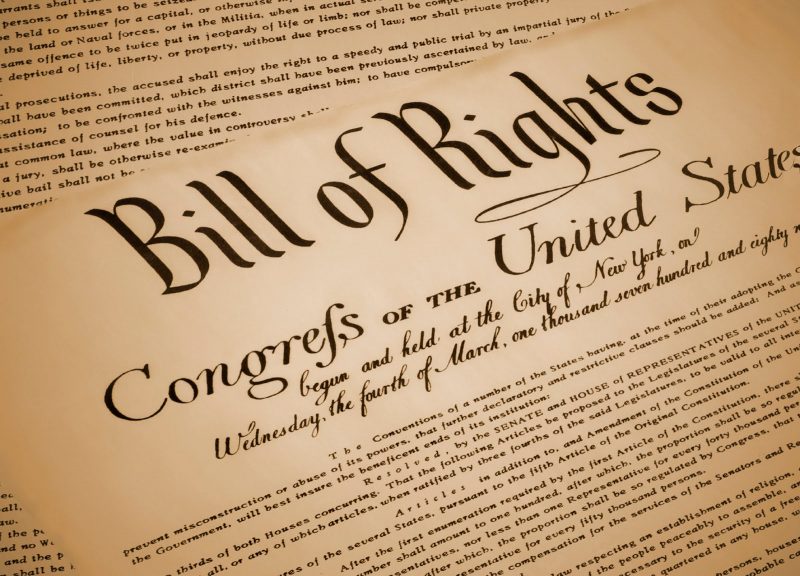 arrants shall
persons or things to be seized.
be held to answer for a capital, or otherwise
the land or Naval forces, or in the Militia, when in actual
same offence to be twice put in jeopardy of life or limb; nor shall be
deprived of life, liberty, or property, without due process of law; nor shall private property
al prosecutions, the accused shall enjoy the right to a speedy and public trial by an impartial jury of the
hall have been committed, which district shall have been previously ascertained by law,
sation; to be confronted with the witnesses against him; to have compulsor
ssistance of counsel for his defence.
t common law, where the value in controversy shall
a jury, shall be otherwise re-exami
ive bail shall not be
numerati
Bill of Rights
Congreſs OF THE United States
begun and held at the City of New York, on
Wednesday, the fourth of March, one thousand seven hundred and eighty n
The Conventions of a number of the States having, at the time of their adopting the C
prevent misconstruction or abuse of its powers, that further declaratory and restrictive clauses should be added: And as
the Government, will best insure the beneficent ends of its institution:
Resolved, by the SENATE and HOUSE of REPRESENTATIVES of the UNIT
thirds of both Houses concurring. That the following Articles be proposed to the Legislatures of the several S
all, or any of which articles, when ratified by three fourths of the said Legislatures, to be valid to all inten
Articles in addition to, and Amendment of the Constitution of the Uni
ures of the several States, pursuant to the fifth Article of the Original Constitution.
After the first enumeration required by the first Article of the Constitution, there s
number shall amount to one hundred, after which, the proportion shall be so regu
entatives, nor less than one Representative for every forty thousand per
after which, the proportion shall be so regulated by Congress, that
ative for every fifty thousand persons.
the compensation for the services of the Senators and Re
law respecting an establishment of religion,
of the people peaceably to assemble, an
necessary to the security of a free
quartered in any house, w
persons, house
probable ca
all,
law.
of the p
and no W
and the p